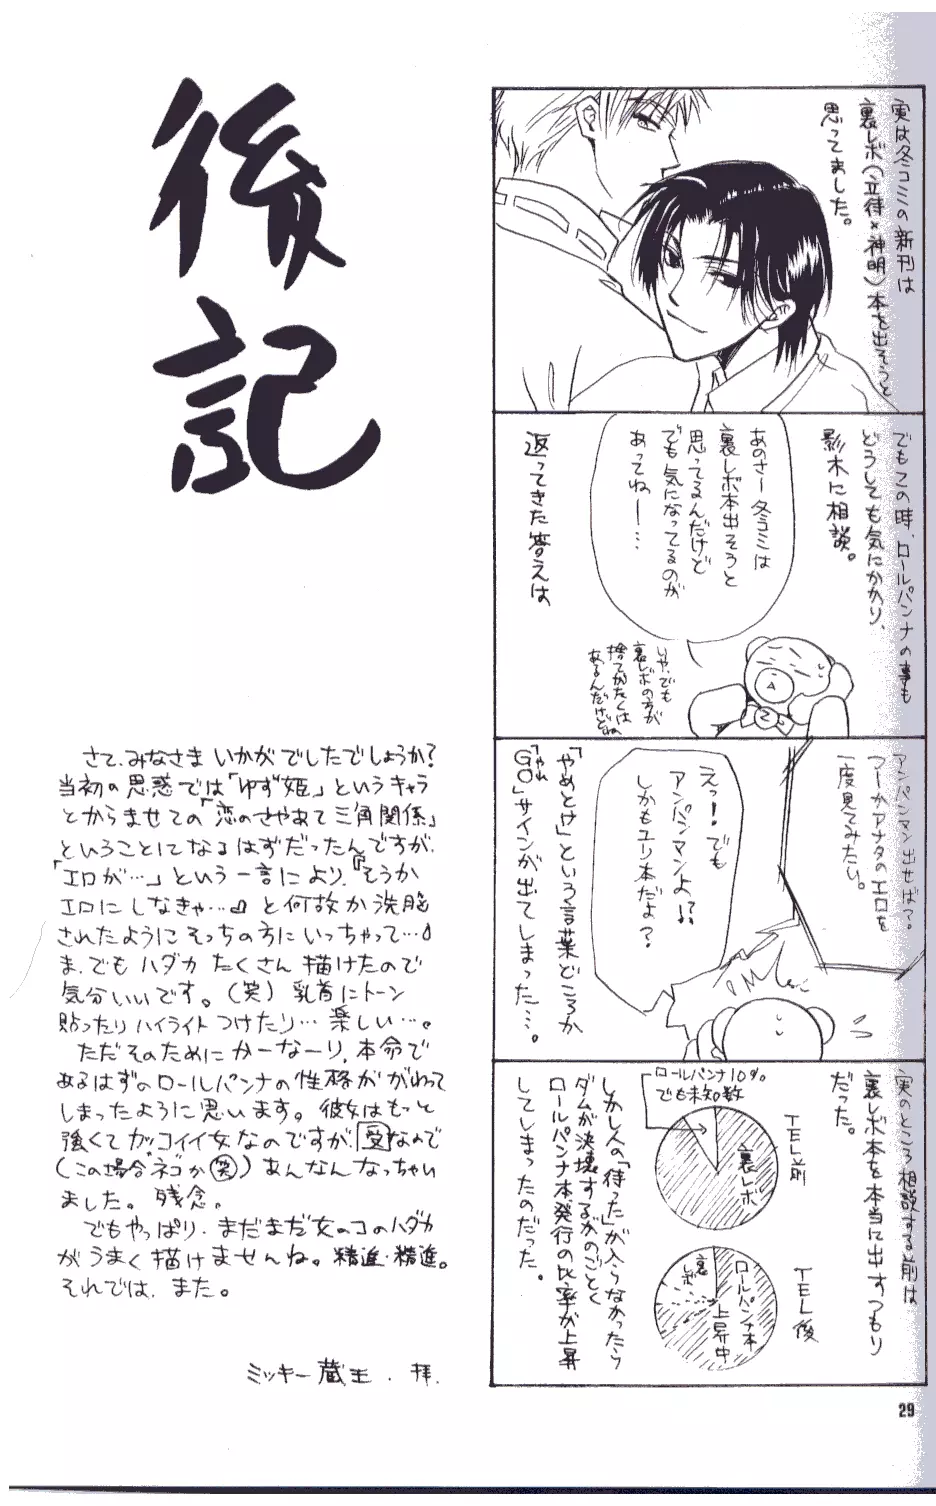 後記
実は冬コミの新刊は
裏レボ(立待×神明)本を出そうと
思ってました。
でもこの時、ロールパンナの事も
どうしても気にかかり、
影木に相談。
あのさー冬コミは
裏レボ本出そうと
思ってるんだけど
でも気になってるのが
あってねー…
いや、でも
裏レボの方が
捨てがたくは
あるんだけどね
返ってきた答えは
アンパンマン出せば?
つーかアナタのエロを
一度見てみたい。
えっ!でも
アンパンマンよ!?
しかもユリ本だよ?
「やめとけ」という言葉どころか
「やれ」
GOサインが出てしまった…。
実のところ相談する前は
裏レボ本を本当に出すつもり
だった。
TEL前
ロールパンナ10%
でも未知数
裏レボ
TEL後
ロールパンナ本
上昇中
裏レボ
しかし人の「待った」が入らなかったら
ダムが決壊するがのごとく
ロールパンナ本発行の比率が上昇
してしまったのだった。
さて、みなさまいかがでしたでしょうか?
当初の思惑では「ゆず姫」というキャラ
とからませての「恋のさやあて三角関係」
ということになるはずだったんですが、
「エロが…」という一言により、「そうか
エロにしなきゃ…」と何故か洗脳
されたようにそっちの方にいっちゃって…
ま、でもハダカたくさん描けたので
気分いいです。(笑)乳首にトーン
貼ったりハイライトつけたり…楽しい…。
ただそのためにかーなーり、本命で
あるはずのロールパンナの性格がかわって
しまったように思います。彼女はもっと
強くてカッコイイ女なのですが、受なので
(この場合ネコか笑)あんなんなっちゃい
ました。残念。
でもやっぱり、まだまだ女のコのハダカ
がうまく描けませんね。精進・精進。
それでは、また。
ミッキー蔵王・拝.
29